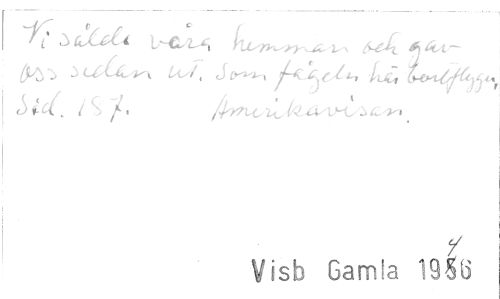 Vi sålde våra hemman och gav
oss sedan ut. Som fågeln här bortflyger.
Sid. 187. Amerikavisan.
Visb Gamla 1946